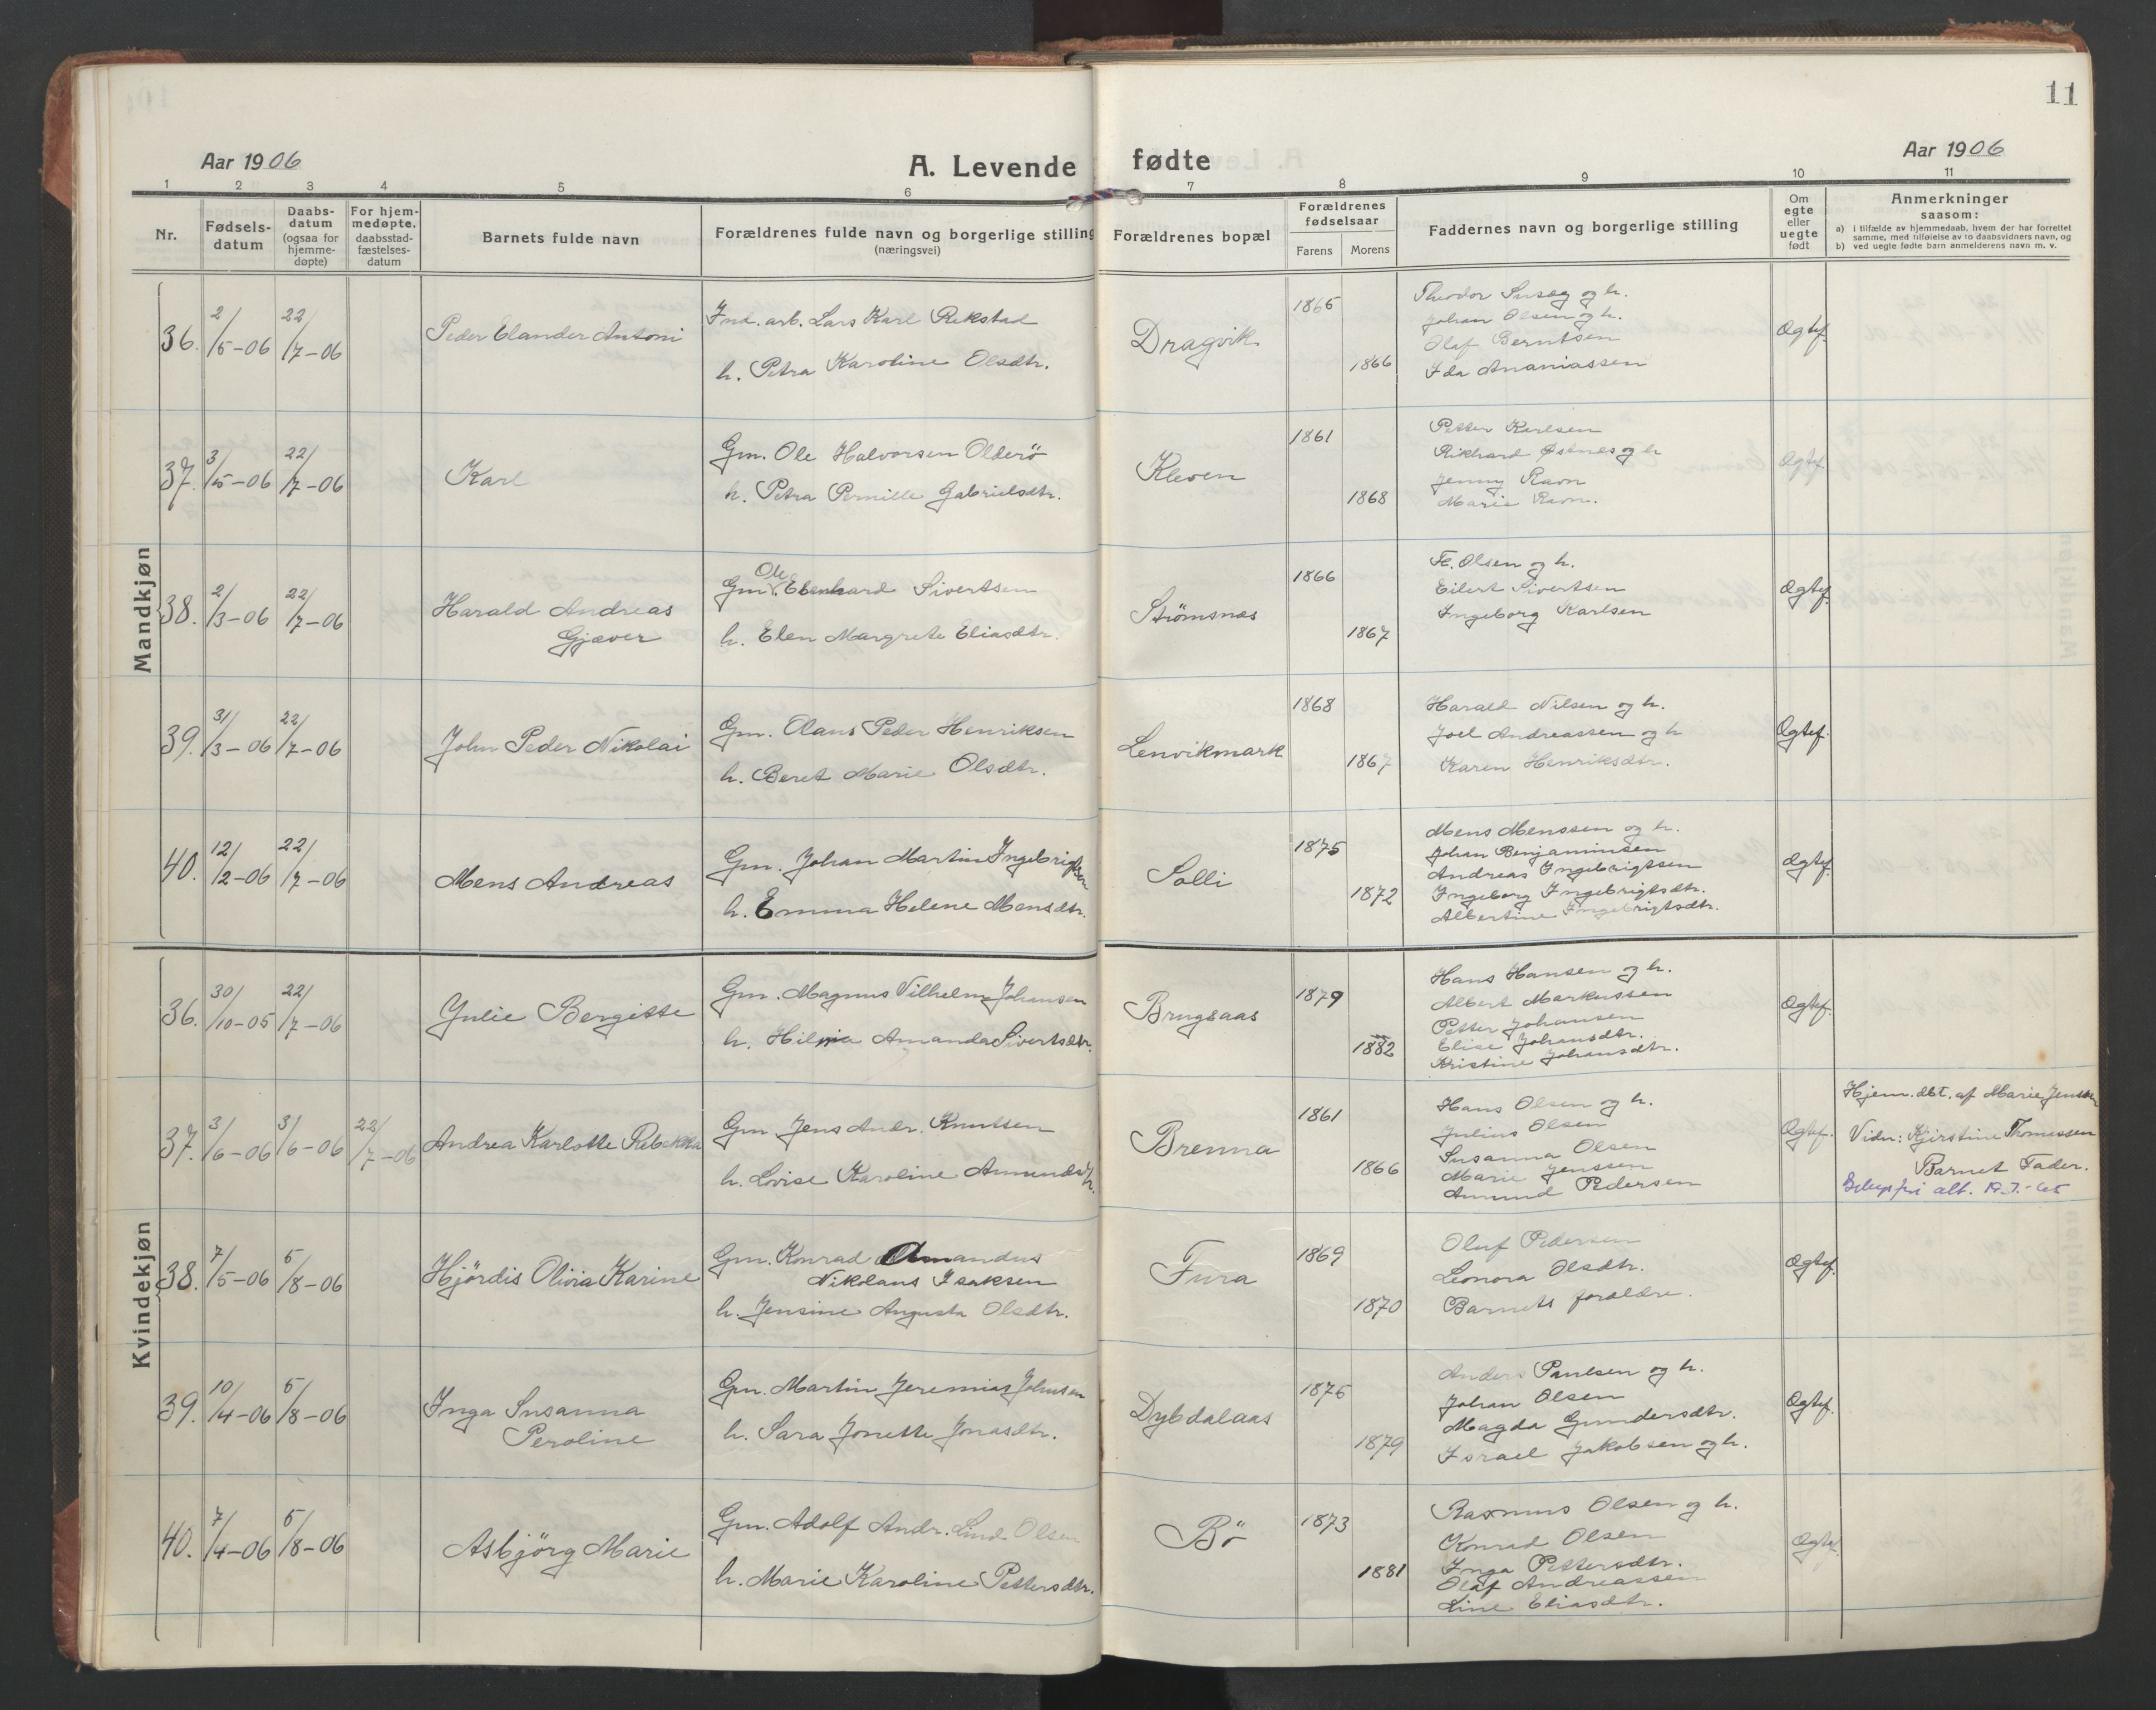 11
Aar 1906
A. Levende fødte
Aar 1906
1 2 3 4 5 6 7 8 9 10 11
Nr.
Fødsels-
datum
Daabs-
datum
(ogsaa for
hjemme-
døpte)
For hjem-
medøpte.
daabsstad-
fæstelses-
datum
Barnets fulde navn
Forældrenes fulde navn og borgerlige stilling
(næringsvei)
Forældrenes bopæl
Forældrenes
fødselsaar
Farens Morens
Faddernes navn og borgerlige stilling
Om
egte
eller
uegte
født
Anmerkninger
saasom:
a) i tilfælde av hjemmedaab, hvem der har forrettet
samme, med tilføielse av to daabsvidners navn, og
b) ved uegte fødte barn anmelderens navn m. v.
Mandkjøn
36. 2/5-06 22/7-06
Peder Elander Antoni
Ind. arb. Lars Karl Rekstad
h. Petra Karoline Olsdtr.
Dragvik
1865
1866
Theodor og h.
Johan Olsen og h.
Olaf Berntsen
Ida Ananiassen
Ægtef.
37. 3/5-06 22/7-06
Karl
Gm. Ole Halvorsen Olderö
h. Petra Pernille Gabrielsdtr.
Kleven
1861
1868
Petter Karlsen
Rikhard Østnes og h
Jenny Ravn
Marie Ravn.
Ægtef.
38. 2/3-06 22/7-06
Harald Andreas
Gjæver
Gm. Ole Edenhard Sivertsen
h. Elen Margrete Eliasdtr.
Strömsnes
1866
1867
Fr. Olsen og h.
Eilert Sivertsen
Ingeborg Karlsen
Ægtef.
39. 31/3-06 22/7-06
John Peder Nikolai
Gm. Olaus Peder Henriksen
h. Beret Marie Olsdtr.
Lenvikmark
1868
1867
Harald Nilsen og h.
Joel Andreassen og h
Karen Henriksdtr.
Ægtef.
40. 12/2-06 22/7-06
Mens Andreas
Gm. Johan Martin Ingebrigtsen
h. Emma Helene Mensdtr.
Solli
1875
1872
Mens Menssen og h.
Johan Benjaminsen
Andreas Ingebrigtsen
Ingeborg Ingebrigtsdtr.
Albertine Ingebrigtsdtr.
Ægtef.
Kvindekjøn
36. 30/10-05 22/7-06
Julie Bergitte
Gm. Magnus Vilhelm Johansen
h. Hilma Amanda Sivertsdtr.
Brugsaas
1879
1882
Hans Hansen og h.
Albert Markussen
Petter Johansen
Elise Johansdtr.
Kristine Johansdtr.
Ægtef.
37. 3/6-06 3/6-06 22/7-06
Andrea Karlotte Rebekka
Gm. Jens Andr. Knutsen
h. Lovise Karoline Amundsdtr.
Brenna
1861
1866
Hans Olsen og h.
Julius Olsen
Susanna Olsen
Marie Jenssen
Amund Pedersen
Ægtef.
Hjem. dbt. af Marie Jenssen
Vidn: Kjirstine Thomassen
Barnet Fader.
38. 7/5-06 5/8-06
Hjördis Olivia Karine
Gm. Konrad Amandus
Nikolaus Isaksen
h. Jensine Augusta Olsdtr.
Fura
1869
1870
Oluf Pedersen
Leonora Olsdtr.
Barnets forældre.
Ægtef.
39. 10/4-06 5/8-06
Inga Susanna
Peroline
Gm. Martin Jeremias Johnsen
h. Sara Jonette Jonasdtr.
Dybdalaas
1876
1879
Anders Paulsen og h.
Johan Olsen
Magda Gundersdtr.
Israel Jakobsen og h.
Ægtef.
40. 7/4-06 5/8-06
Asbjörg Marie
Gm. Adolf Andr. Lind Olsen
h. Marie Karoline Pettersdtr.
Bö
1873
1881
Rasmus Olsen og h.
Konrad Olsen
Inga Pettersdtr.
Olaf Andreassen
Line Eliasdtr.
Ægtef.